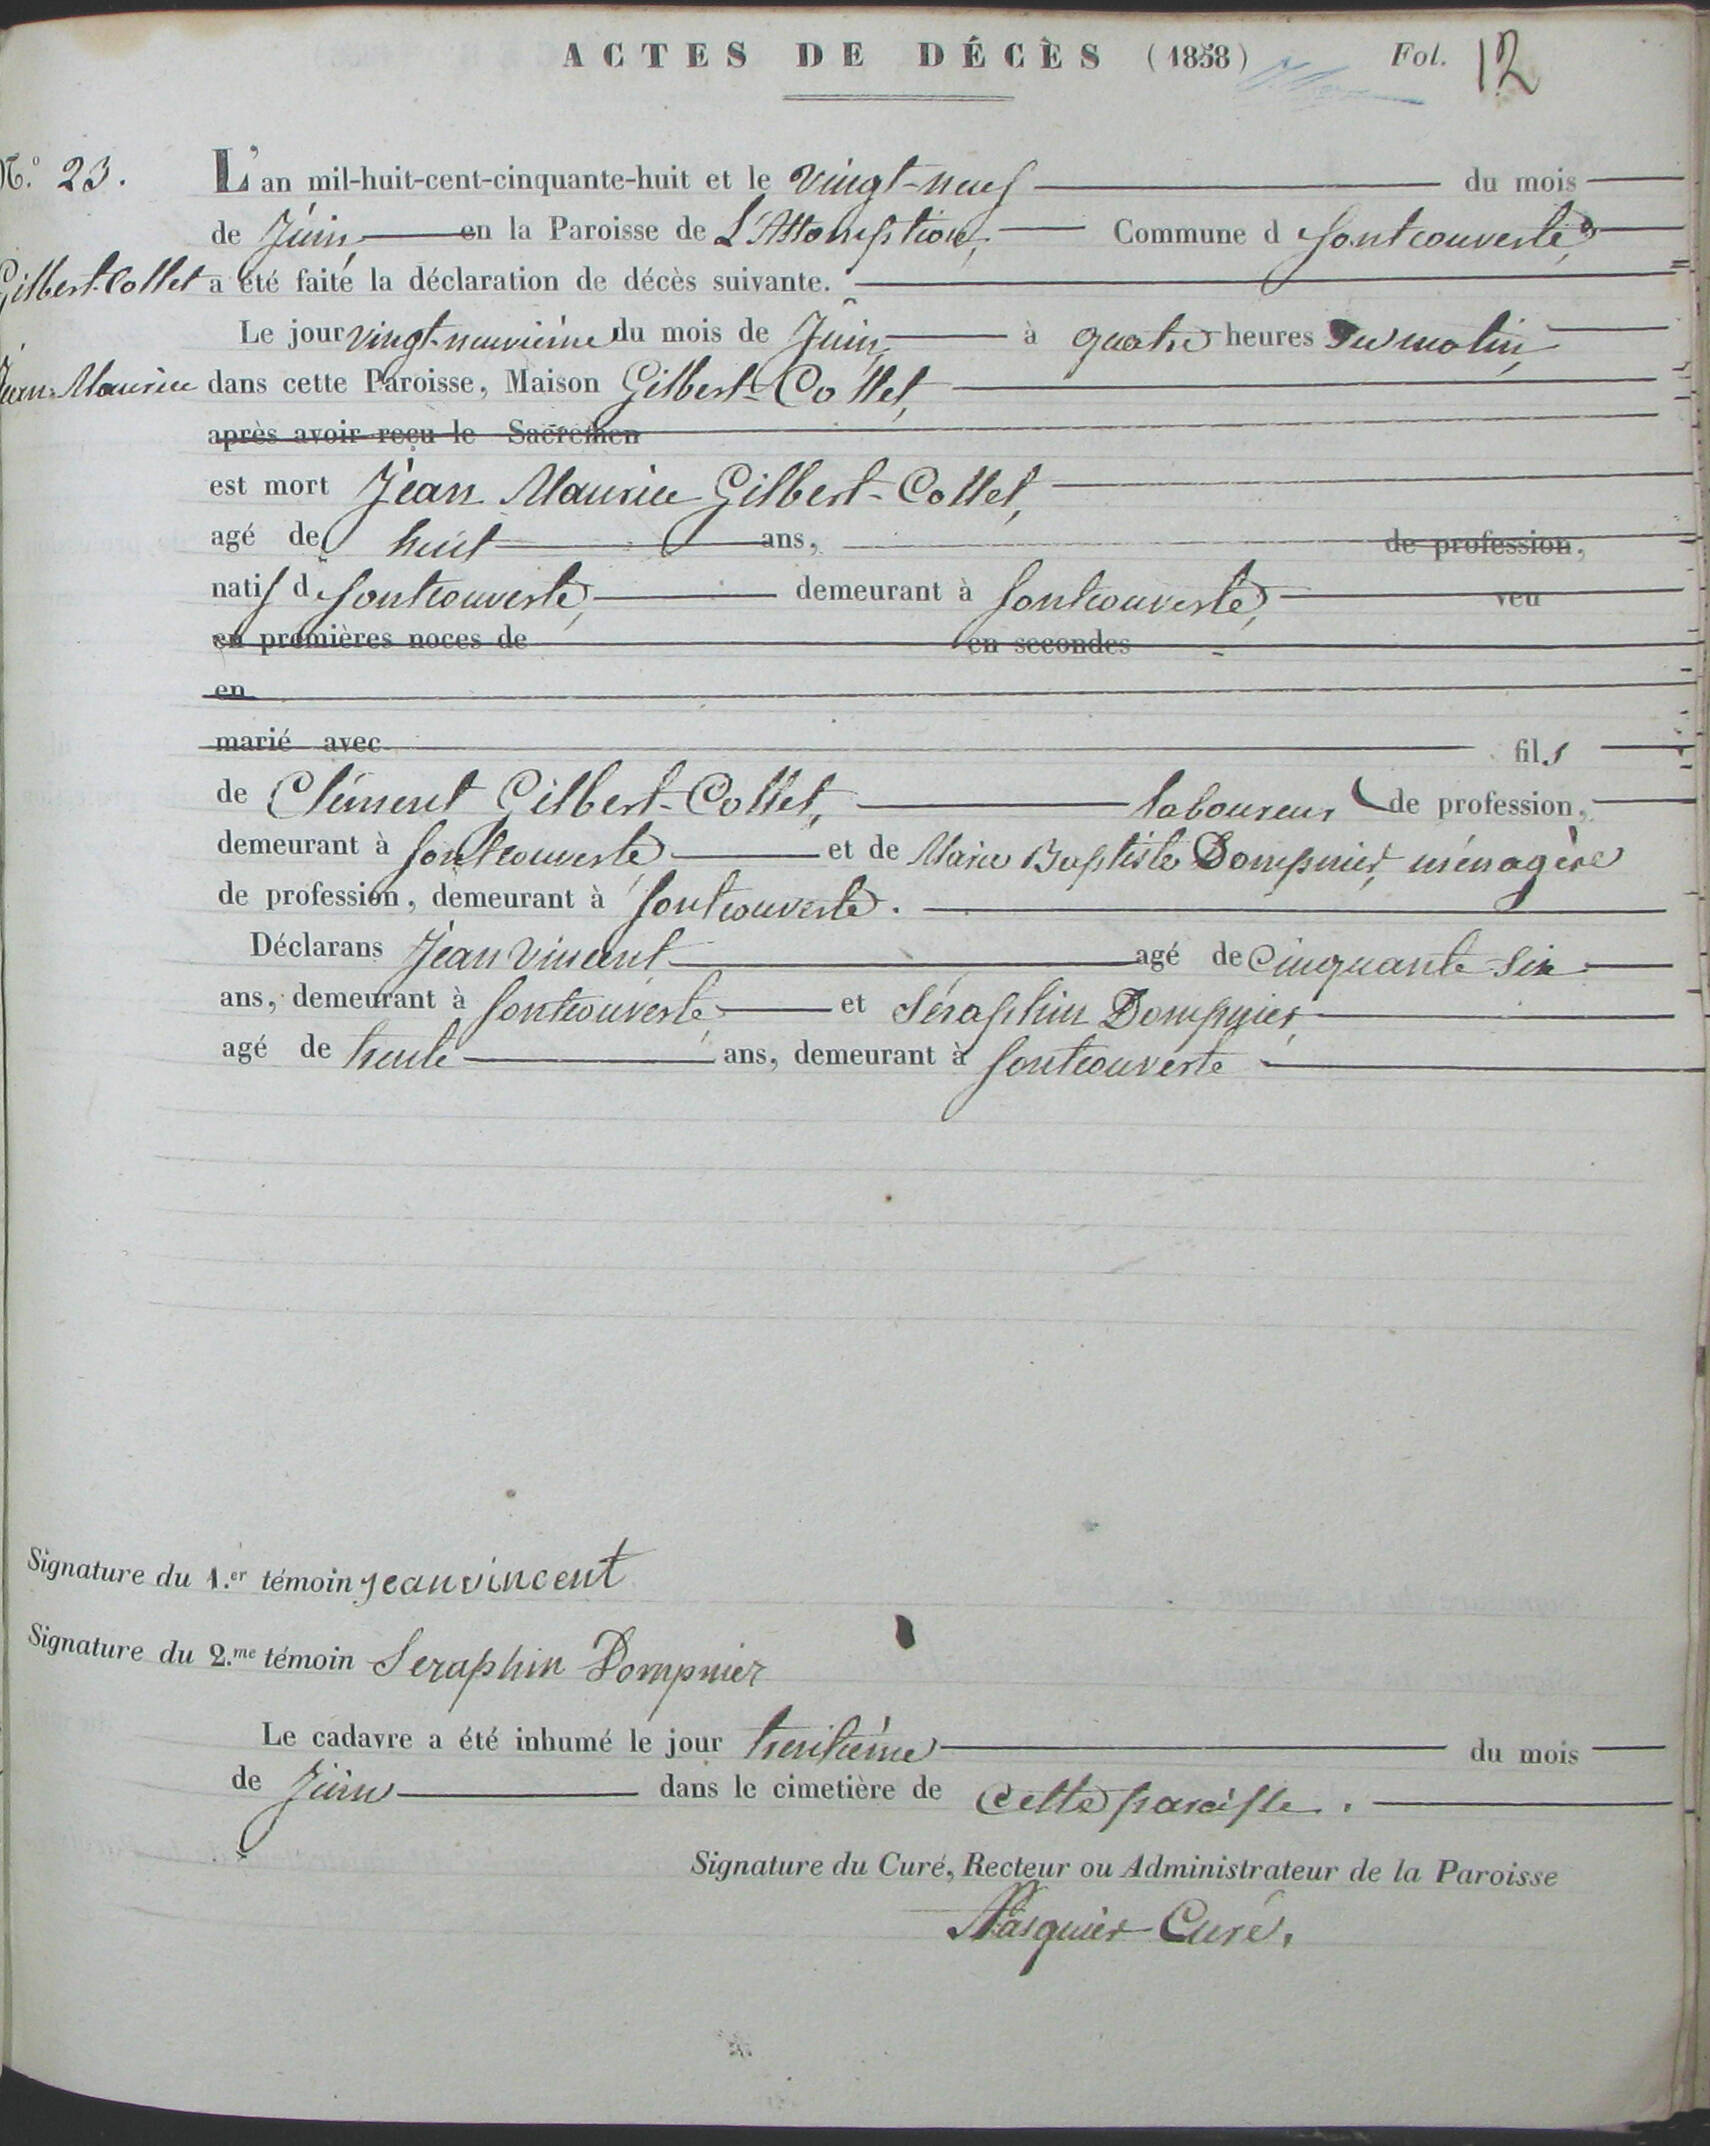 ACTES DE DÉCÈS (1858) Fol. 12
N.º 23. L'an mil-huit-cent-cinquante-huit et le vingt-neuf du mois
de Juin, en la Paroisse de L'Assomption, Commune d fontcouverte,
Gilbert-Collet a été faite la déclaration de décès suivante.
Le jour vingt-neuvième du mois de Juin, à quatre heures du matin,
Jean-Maurice dans cette Paroisse, Maison Gilbert-Collet,
après avoir reçu le Sacremen
est mort Jean Maurice Gilbert-Collet,
agé de huit ans, de profession,
natif d fontcouverte, demeurant à fontcouverte, veu
en premières noces de en secondes
en
marié avec fils
de Clément Gilbert-Collet, laboureur de profession,
demeurant à fontcouverte et de Marie Baptiste Dompnier, ménagère
de profession, demeurant à fontcouverte.
Déclarans Jean Vincent agé de Cinquante six
ans, demeurant à fontcouverte, et Séraphin Dompnier,
agé de trente ans, demeurant à fontcouverte
Signature du 1.er témoin jeanvincent
Signature du 2.me témoin Seraphin Dompnier
Le cadavre a été inhumé le jour trentième du mois
de Juin dans le cimetière de cette paroisse.
Signature du Curé, Recteur ou Administrateur de la Paroisse
Pasquier Curé.